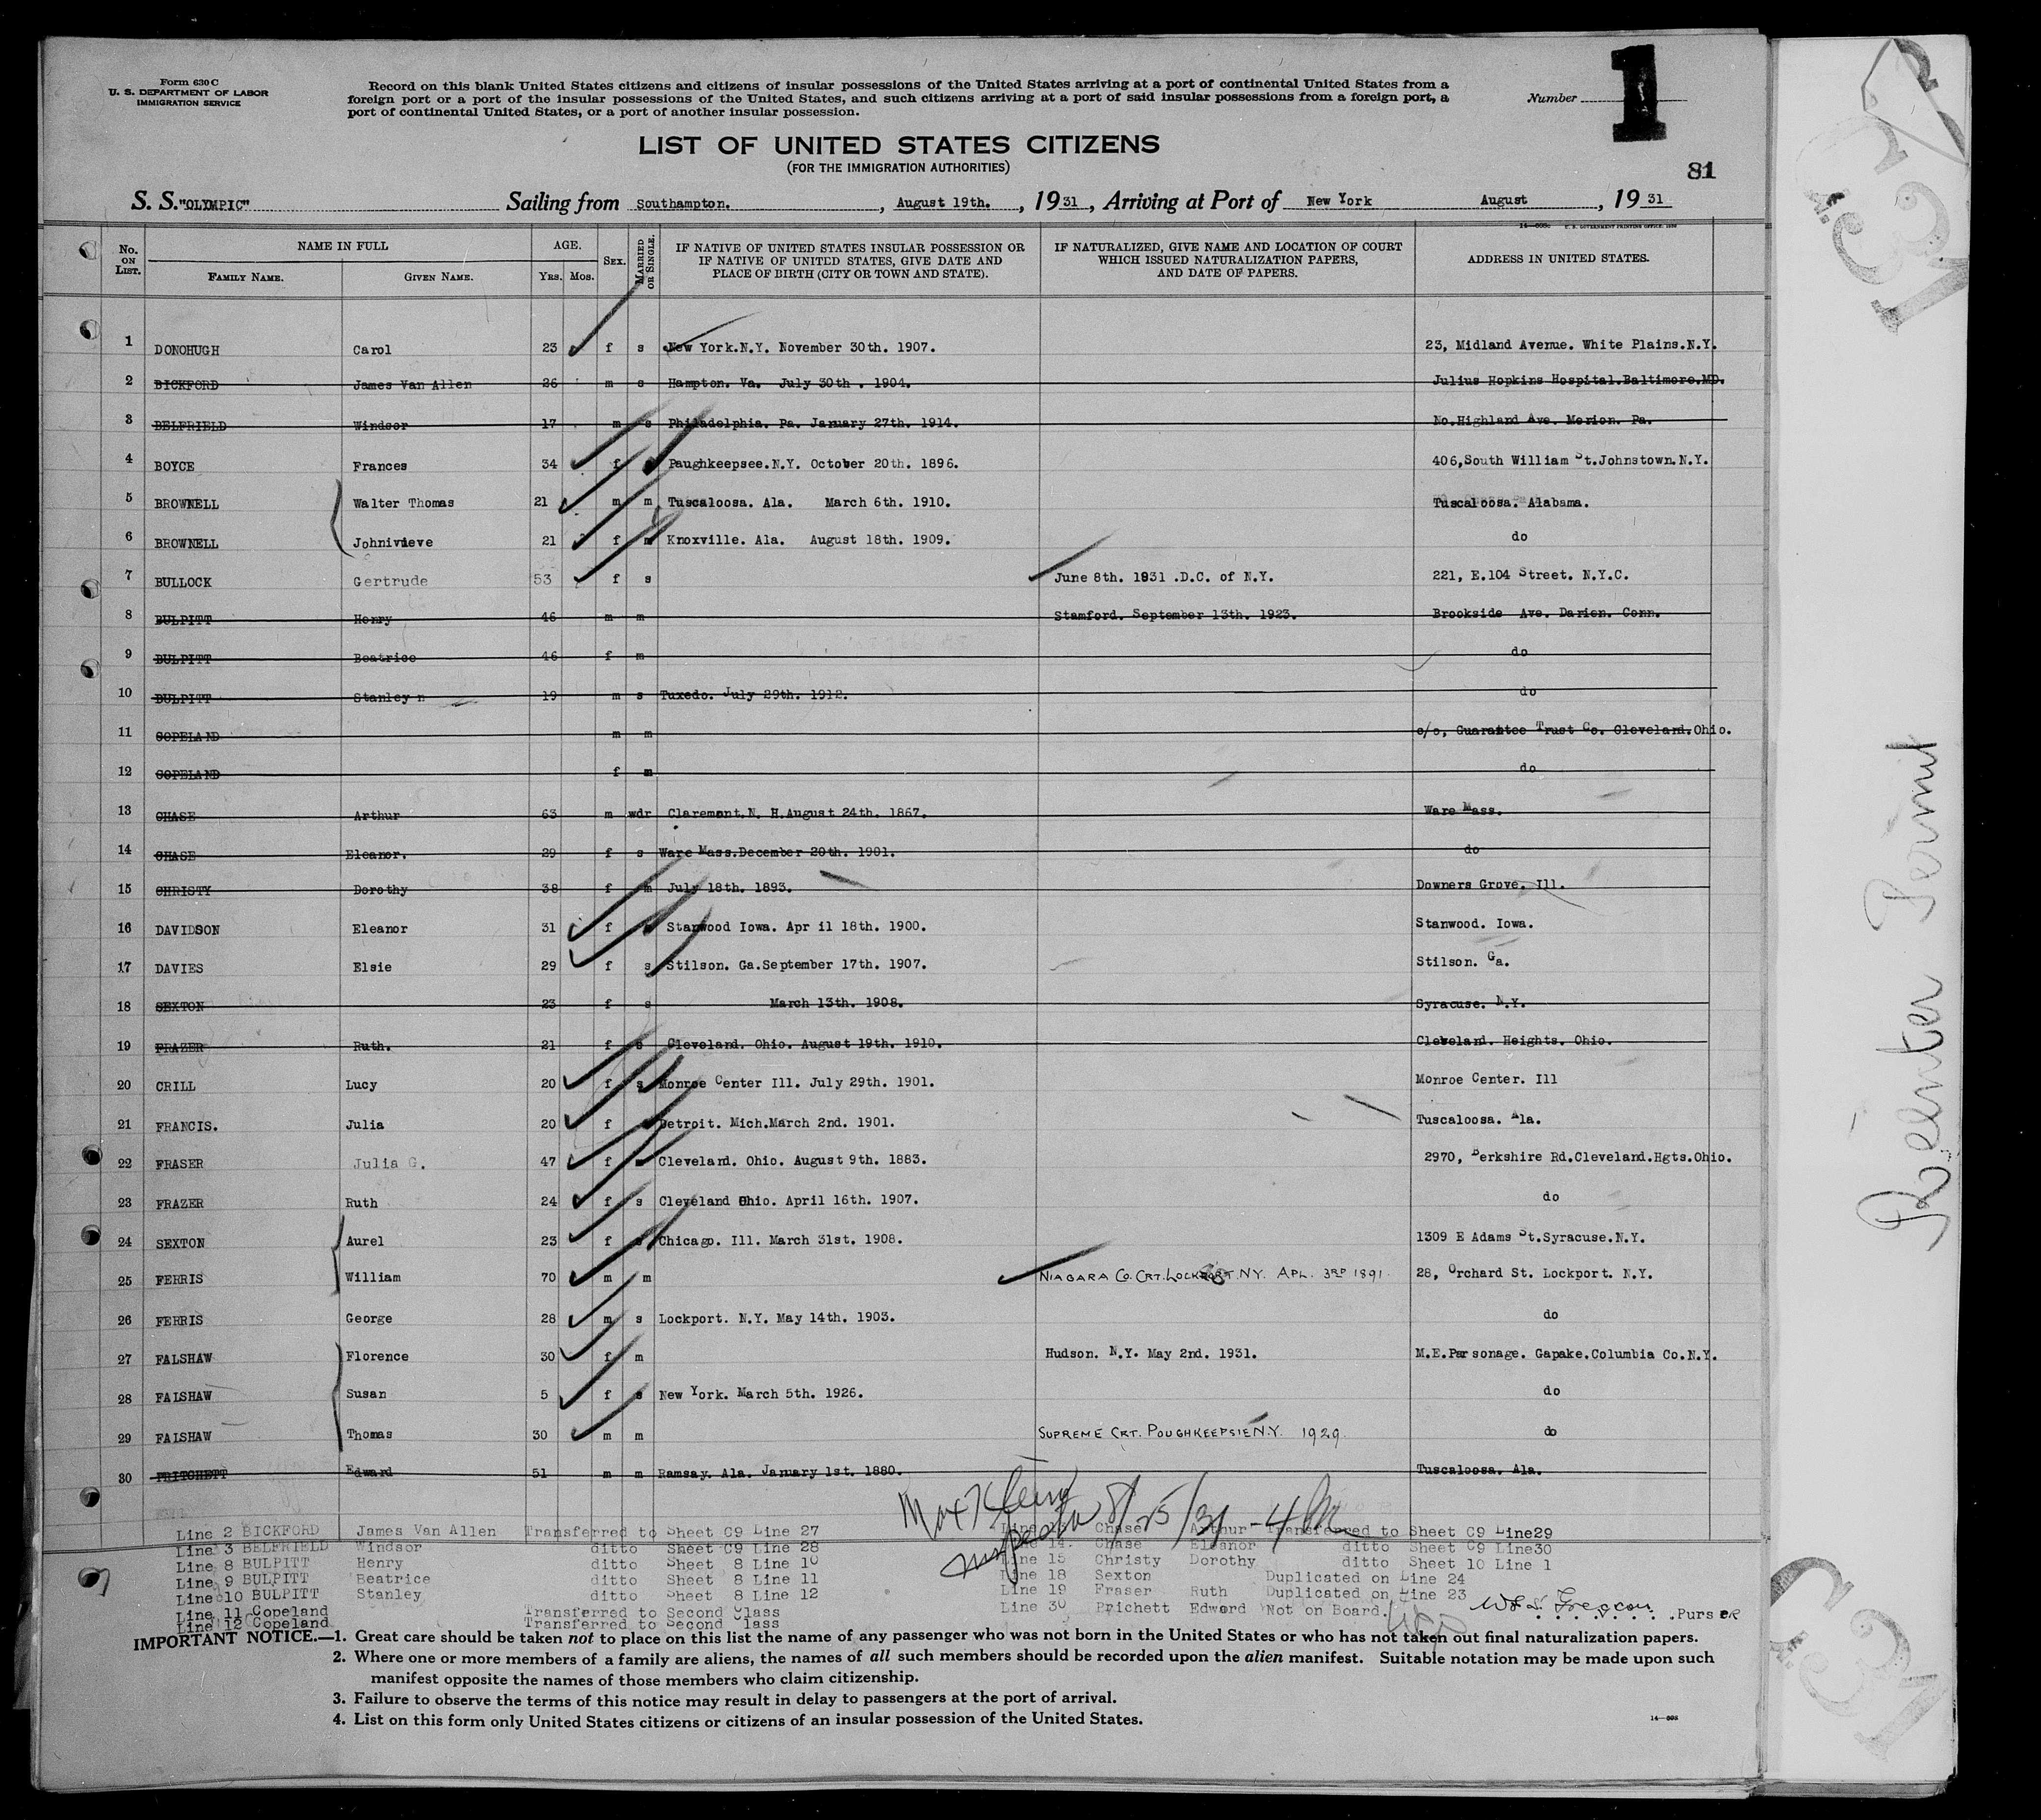 Form 630 C
U. S. DEPARTMENT OF LABOR
IMMIGRATION SERVICE
Record on this blank United States citizens and citizens of insular possessions of the United States arriving at a port of continental United States from a
foreign port or a port of the insular possessions of the United States, and such citizens arriving at a port of said insular possessions from a foreign port, a
port of continental United States, or a port of another insular possession.
Number 1
LIST OF UNITED STATES CITIZENS
(FOR THE IMMIGRATION AUTHORITIES)
81
S. S. "OLYMPIC" Sailing from Southampton. , August 19th. , 1931 , Arriving at Port of New York August , 1931
14—608c U. S. GOVERNMENT PRINTING OFFICE: 1930
No. ON LIST. NAME IN FULL FAMILY NAME. GIVEN NAME. AGE. YRS. MOS. SEX. MARRIED OR SINGLE. IF NATIVE OF UNITED STATES INSULAR POSSESSION OR IF NATIVE OF UNITED STATES, GIVE DATE AND PLACE OF BIRTH (CITY OR TOWN AND STATE). IF NATURALIZED, GIVE NAME AND LOCATION OF COURT WHICH ISSUED NATURALIZATION PAPERS, AND DATE OF PAPERS. ADDRESS IN UNITED STATES.
1 DONOHUGH Carol 23 f s New York.N.Y. November 30th. 1907. 23, Midland Avenue. White Plains.N.Y.
2 BICKFORD James Van Allen 26 m s Hampton. Va. July 30th . 1904. Julius Hopkins Hospital.Baltimore.MD.
3 BELFRIELD Windsor 17 m s Philadelphia. Pa. January 27th. 1914. No.Highland Ave. Merion. Pa.
4 BOYCE Frances 34 f Paughkeepsee.N.Y. October 20th. 1896. 406,South William St.Johnstown.N.Y.
5 BROWNELL Walter Thomas 21 m m Tuscaloosa. Ala. March 6th. 1910. Tuscaloosa. Alabama.
6 BROWNELL Johnivieve 21 f m Knoxville. Ala. August 18th. 1909. do
7 BULLOCK Gertrude 53 f s June 8th. 1931 .D.C. of N.Y. 221, E.104 Street. N.Y.C.
8 BULPITT Henry 46 m m Stamford. September 13th. 1923. Brookside Ave. Darien. Conn.
9 BULPITT Beatrice 46 f m do
10 BULPITT Stanley n 19 m s Tuxedo. July 29th. 1912. do
11 COPELAND m m c/o, Guarantee Trust Co. Cleveland.Ohio.
12 COPELAND f m do
13 CHASE Arthur 63 m wdr Claremont.N. H.August 24th. 1867. Ware Mass.
14 CHASE Eleanor. 29 f s Ware Mass.December 20th. 1901. do
15 CHRISTY Dorothy 38 f m July 18th. 1893. Downers Grove. Ill.
16 DAVIDSON Eleanor 31 f Stanwood Iowa. Apr il 18th. 1900. Stanwood. Iowa.
17 DAVIES Elsie 29 f s Stilson. Ga.September 17th. 1907. Stilson. Ga.
18 SEXTON 23 f s March 13th. 1908. Syracuse. N.Y.
19 FRAZER Ruth. 21 f s Cleveland. Ohio. August 19th. 1910. Cleveland. Heights. Ohio.
20 CRILL Lucy 20 f s Monroe Center Ill. July 29th. 1901. Monroe Center. Ill
21 FRANCIS. Julia 20 f Detroit. Mich.March 2nd. 1901. Tuscaloosa. Ala.
22 FRASER Julia G. 47 f Cleveland. Ohio. August 9th. 1883. 2970, Berkshire Rd.Cleveland.Hgts.Ohio.
23 FRAZER Ruth 24 f s Cleveland Ohio. April 16th. 1907. do
24 SEXTON Aurel 23 f s Chicago. Ill. March 31st. 1908. 1309 E Adams St.Syracuse.N.Y.
25 FERRIS William 70 m m NIAGARA CO. CRT. LOCKPORT. NY. APL. 3RD 1891. 28, Orchard St. Lockport. N.Y.
26 FERRIS George 28 m s Lockport. N.Y. May 14th. 1903. do
27 FALSHAW Florence 30 f m Hudson. N.Y. May 2nd. 1931. M.E.Parsonage. Gapake.Columbia Co.N.Y.
28 FALSHAW Susan 5 f s New York. March 5th. 1926. do
29 FALSHAW Thomas 30 m m SUPREME CRT. POUGHKEEPSIE N.Y. 1929. do
30 PRITCHETT Edward 51 m m Ramsay. Ala. January 1st. 1880. Tuscaloosa. Ala.
Inspector 8/25/31 - 4
Line 2 BICKFORD James Van Allen Transferred to Sheet C9 Line 27
Line 3 BELFRIELD Windsor ditto Sheet C9 Line 28
Line 8 BULPITT Henry ditto Sheet 8 Line 10
Line 9 BULPITT Beatrice ditto Sheet 8 Line 11
Line 10 BULPITT Stanley ditto Sheet 8 Line 12
Line 11 Copeland Transferred to Second Class
Line 12 Copeland Transferred to Second lass
Chase Arthur Transferred to Sheet C9 Line29
Line 14. Chase Eleanor ditto Sheet C9 Line30
Line 15 Christy Dorothy ditto Sheet 10 Line 1
Line 18 Sexton Duplicated on Line 24
Line 19 Fraser Ruth Duplicated on Line 23
Line 30 Prichett Edward Not on Board.
Purser
IMPORTANT NOTICE.—1. Great care should be taken not to place on this list the name of any passenger who was not born in the United States or who has not taken out final naturalization papers.
2. Where one or more members of a family are aliens, the names of all such members should be recorded upon the alien manifest. Suitable notation may be made upon such
manifest opposite the names of those members who claim citizenship.
3. Failure to observe the terms of this notice may result in delay to passengers at the port of arrival.
4. List on this form only United States citizens or citizens of an insular possession of the United States.
14—608
Reënter Permit